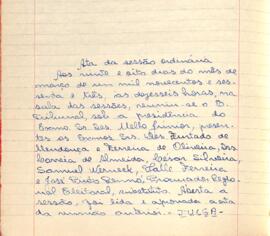 Ata da sessão ordinária
Aos vinte e oito dias do mês de
março de um mil novecentos e ses-
senta e três, às dezesseis horas, na
sala das sessões, reuniu-se o E.
Tribunal, sob a presidência do
Exmo. Sr. Des. Mello Júnior, presen-
tes os Exmos. Srs. Des. Furtado de
Mendonça e Ferreira de Oliveira, Drs.
Correia de Almeida, César Silveira,
Samuel Werneck, Valle Ferreira
e José Procurador Regio-
nal Eleitoral, substituto. Aberta a
sessão, foi lida e aprovada a ata
da reunião anterior. JULGA-